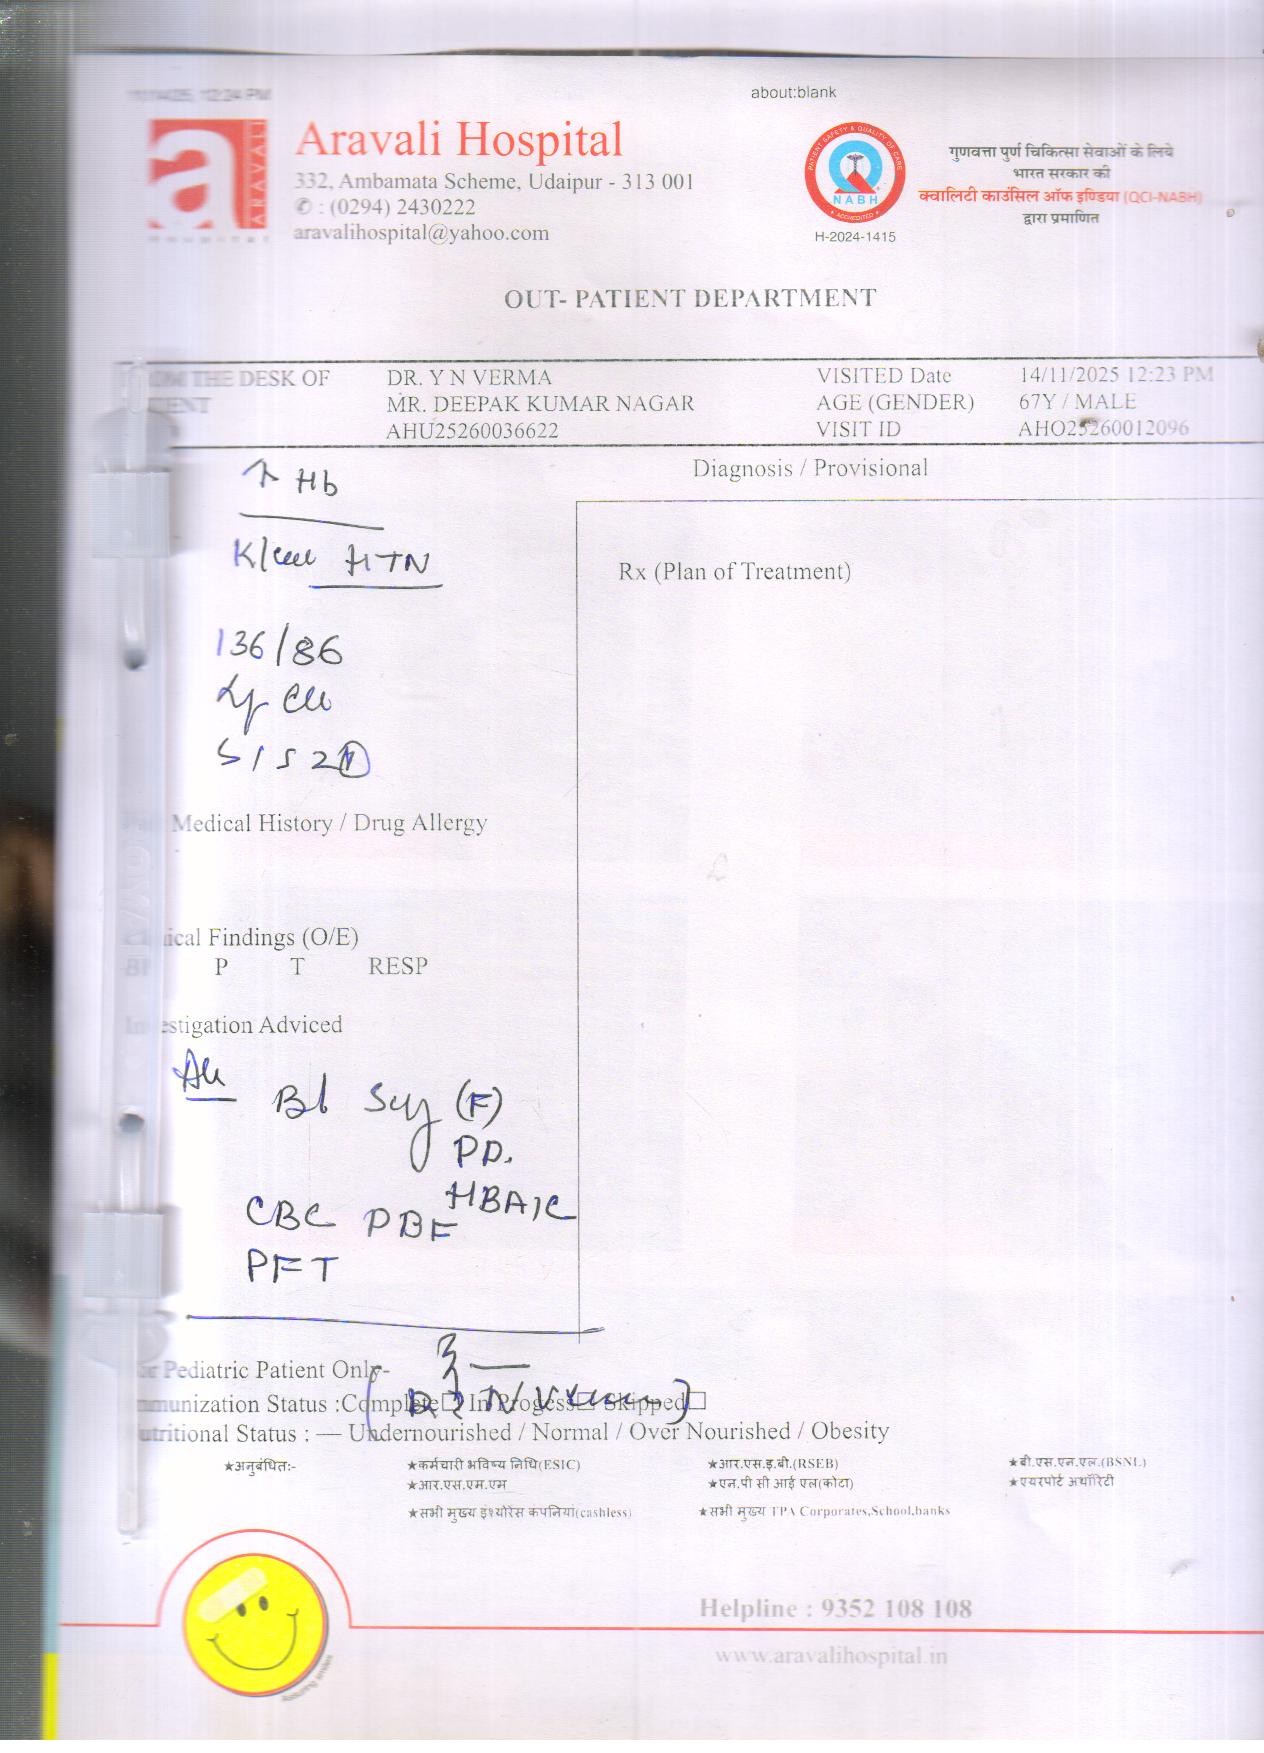 about:blank
Aravali Hospital
332, Ambamata Scheme, Udaipur - 313 001
✆ : (0294) 2430222
aravalihospital@yahoo.com
ARAVALI
Hospital
PATIENT SAFETY & QUALITY OF CARE
NABH
ACCREDITED
H-2024-1415
गुणवत्ता पुर्ण चिकित्सा सेवाओं के लिये
भारत सरकार की
क्वालिटी काउंसिल ऑफ इण्डिया (QCI-NABH)
द्वारा प्रमाणित
OUT- PATIENT DEPARTMENT
THE DESK OF DR. Y N VERMA VISITED Date 14/11/2025 12:23 PM
MR. DEEPAK KUMAR NAGAR AGE (GENDER) 67Y / MALE
AHU25260036622 VISIT ID AHO25260012096
↑ Hb
HTN
136/86
S1S2 N
Diagnosis / Provisional
Rx (Plan of Treatment)
Medical History / Drug Allergy
Findings (O/E)
P T RESP
Adviced
Bl (F)
PP.
HBA1C
CBC PBF
PFT
Pediatric Patient Only-
Status :Complete☐ In Progess☐ Skipped☐
Status : — Undernourished / Normal / Over Nourished / Obesity
★अनुबंधित:- ★कर्मचारी भविष्य निधि(ESIC) ★आर.एस.इ.बी.(RSEB) ★बी.एस.एन.एल.(BSNL)
★आर.एस.एम.एम ★एन.पी सी आई एल(कोटा) ★एयरपोर्ट अथॉरिटी
★सभी मुख्य इंश्योरेंस कंपनियां(cashless) ★सभी मुख्य TPA Corporates,School,banks
Helpline : 9352 108 108
www.aravalihospital.in
Assuring smiles